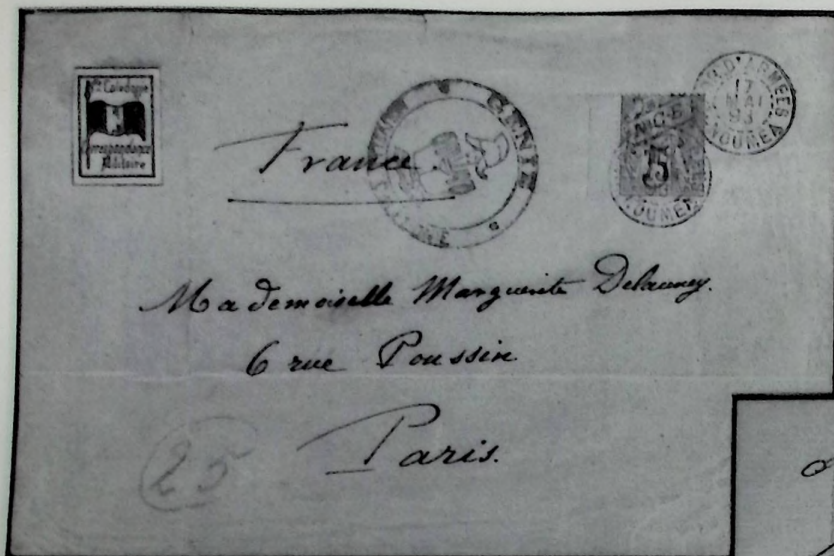 Nlle Calédonie
Correspondance
Militaire
France
GENIE
N C E
5
NOUMEA
CORR. D'ARMEES
17
MAI
93
NOUMEA
Mademoiselle Marguerite Delauney.
6 rue Poussin
Paris.
25